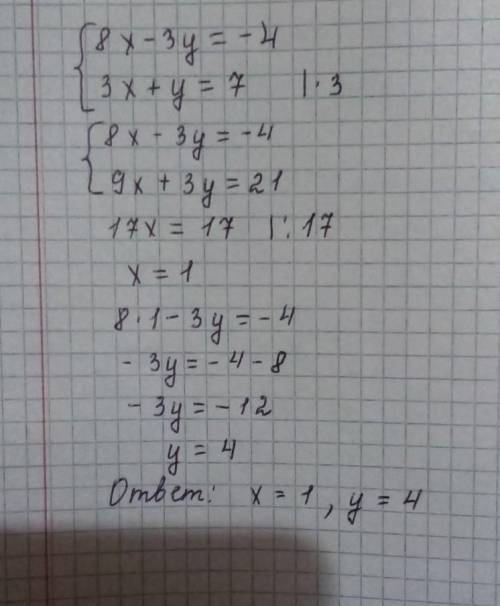 8x - 3y = -4
3x + y = 7 |·3
8x - 3y = -4
9x + 3y = 21
17x = 17 |:17
x = 1
8·1 - 3y = -4
- 3y = -4 - 8
- 3y = -12
y = 4
Ответ: x = 1, y = 4